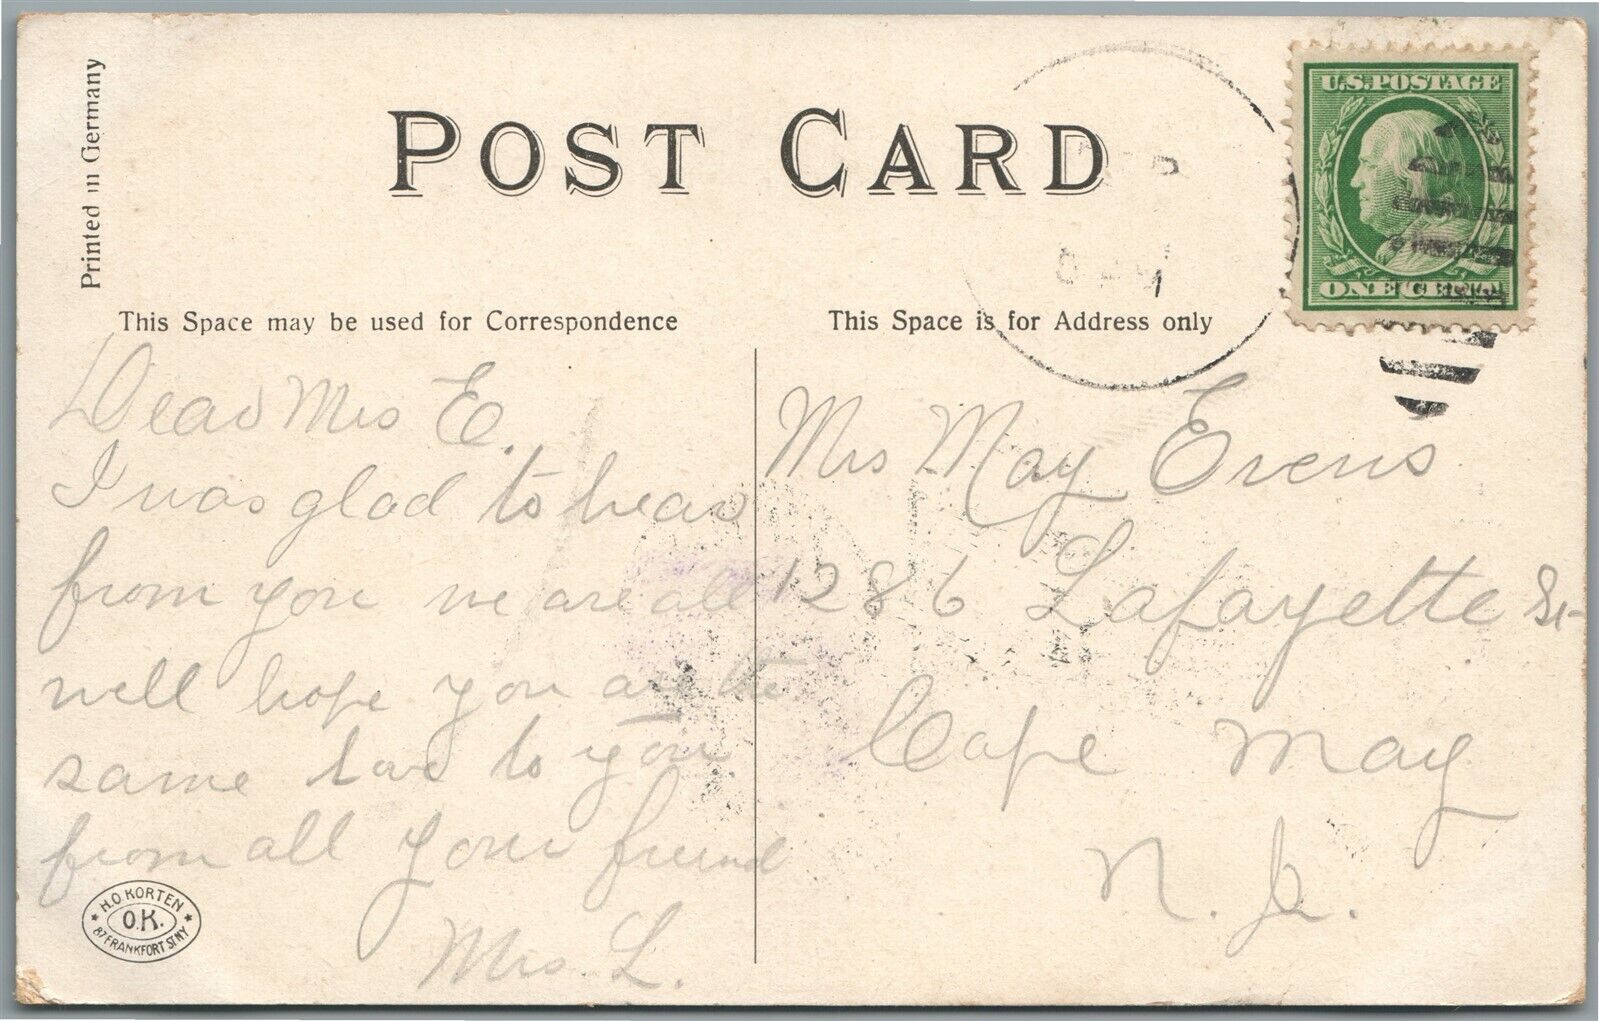 Printed in Germany
POST CARD
U.S. POSTAGE
ONE CENT
This Space may be used for Correspondence
This Space is for Address only
Dear Mrs E.
I was glad to hear
from you we are all
well hope you are the
same love to you
from all your friend
Mrs L.
Mrs May Evens
1286 Lafayette St
Cape May
N. J.
H.O. KORTEN
O.K.
87 FRANKFORT ST. NY